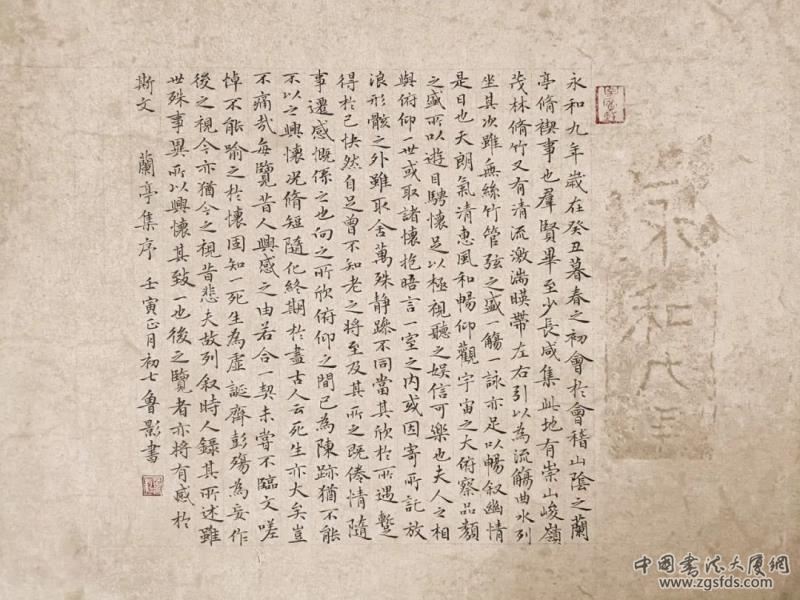 永和九年歲在癸丑暮春之初會於會稽山陰之蘭
亭脩禊事也羣賢畢至少長咸集此地有崇山峻嶺
茂林脩竹又有清流激湍暎帶左右引以為流觴曲水列
坐其次雖無絲竹管弦之盛一觴一詠亦足以暢叙幽情
是日也天朗氣清惠風和暢仰觀宇宙之大俯察品類
之盛所以遊目騁懷足以極視聽之娛信可樂也夫人之相
與俯仰一世或取諸懷抱晤言一室之內或因寄所託放
浪形骸之外雖取舍萬殊静躁不同當其欣於所遇蹔
得於己快然自足曾不知老之將至及其所之既倦情隨
事遷感慨係之也向之所欣俯仰之間已為陳跡猶不能
不以之興懷况脩短隨化終期於盡古人云死生亦大矣豈
不痛哉每覽昔人興感之由若合一契未嘗不臨文嗟
悼不能喻之於懷固知一死生為虛誕齊彭殤為妄作
後之視今亦猶今之視昔悲夫故列叙時人錄其所述雖
世殊事異所以興懷其致一也後之覽者亦將有感於
斯文 蘭亭集序 壬寅正月初七魯影書
中国书法大厦網
www.zgsfds.com